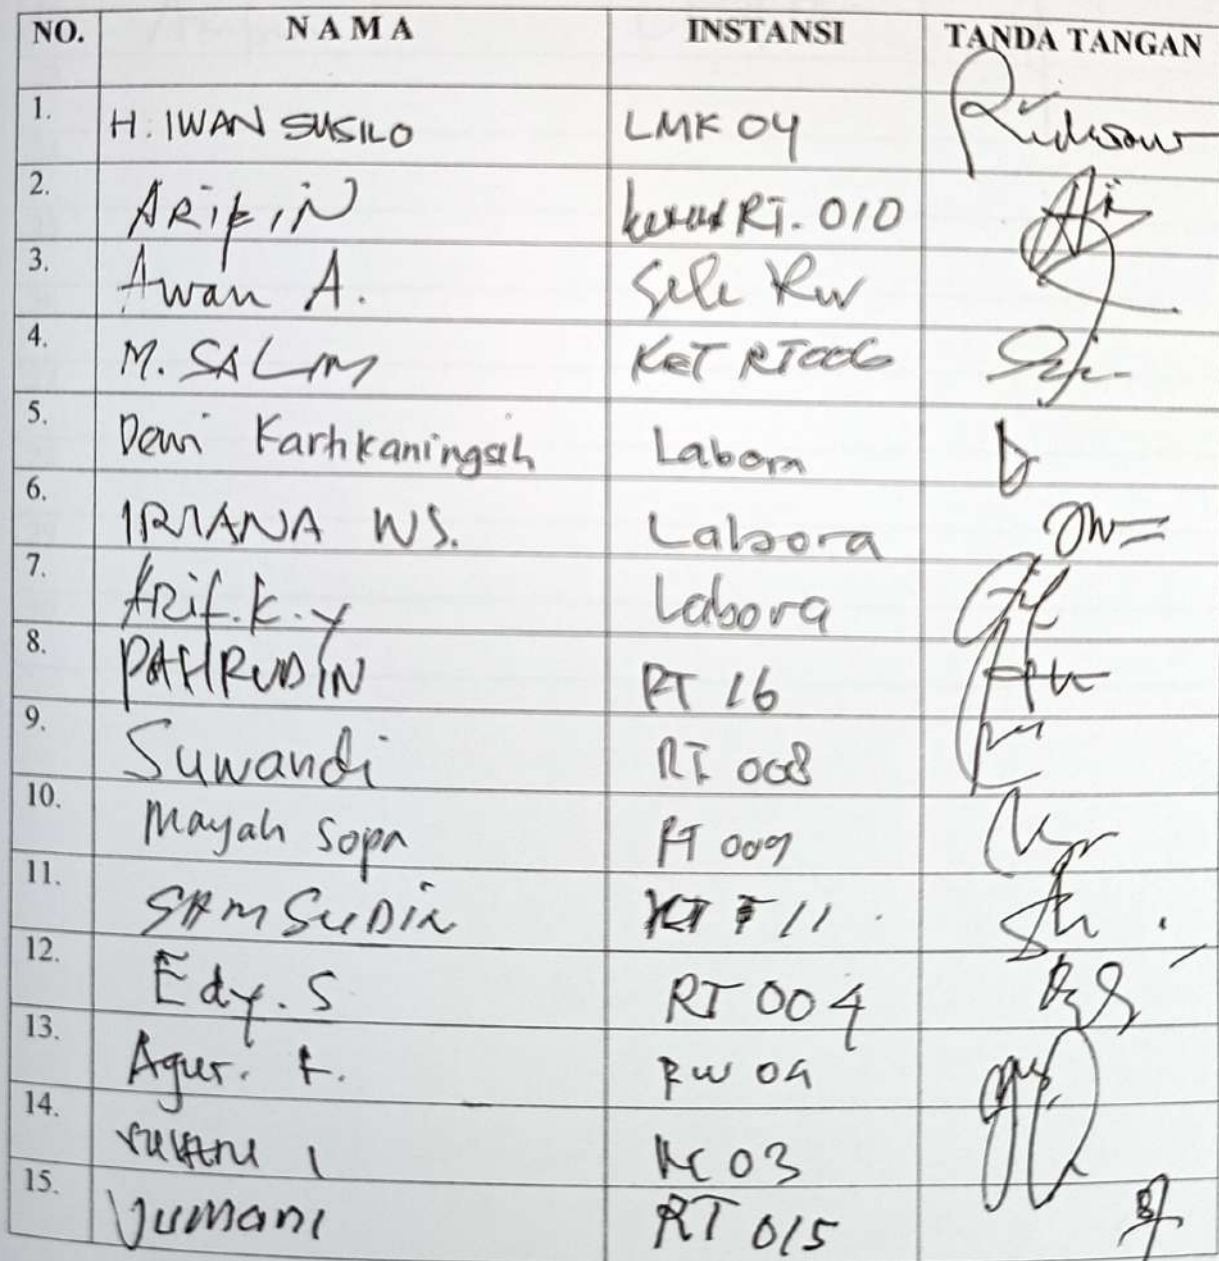 NO. NAMA INSTANSI TANDA TANGAN
1. H. IWAN SUSILO LMK 04
2. ARIPIN RT. 010
3. Awan A. Sek RW
4. M. SALIM KET RT 006
5. Dewi Kartikaningsih Labora
6. IRIANA WS. Labora
7. Arif. K. Y Labora
8. PAHRUDIN RT 16
9. Suwandi RT 008
10. Mayah Sopa RT 009
11. SAMSUDIN 11
12. Edy. S RT 004
13. Agus. RW 04
14. 03
15. Jumani RT 015